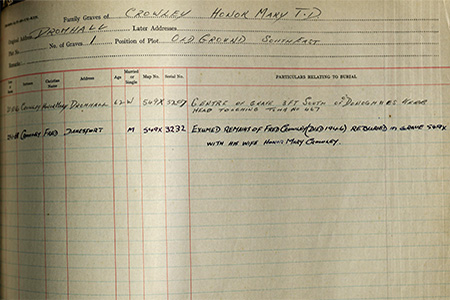 Family Graves of CROWLEY HONOR MARY T.D
Original Address DROMHALL Later Addresses
Plot No. No. of Graves 1 Position of Plot OLD GROUND SOUTH EAST
Remarks
Surname Christian Name Address Age Married or Single Map No. Serial No. PARTICULARS RELATING TO BURIAL
Crowley Honor Mary DROMHALL 62 W 549X CENTRE OF GRAVE 3FT SOUTH OF O'DONOGHUES KERB
HEAD TOUCHING
Crowley Fred DANESFORT M 549X 3232 EXUMED REMAINS OF FRED CROWLEY (DIED 1945) REBURIED IN GRAVE 549X
WITH HIS WIFE HONOR MARY CROWLEY.